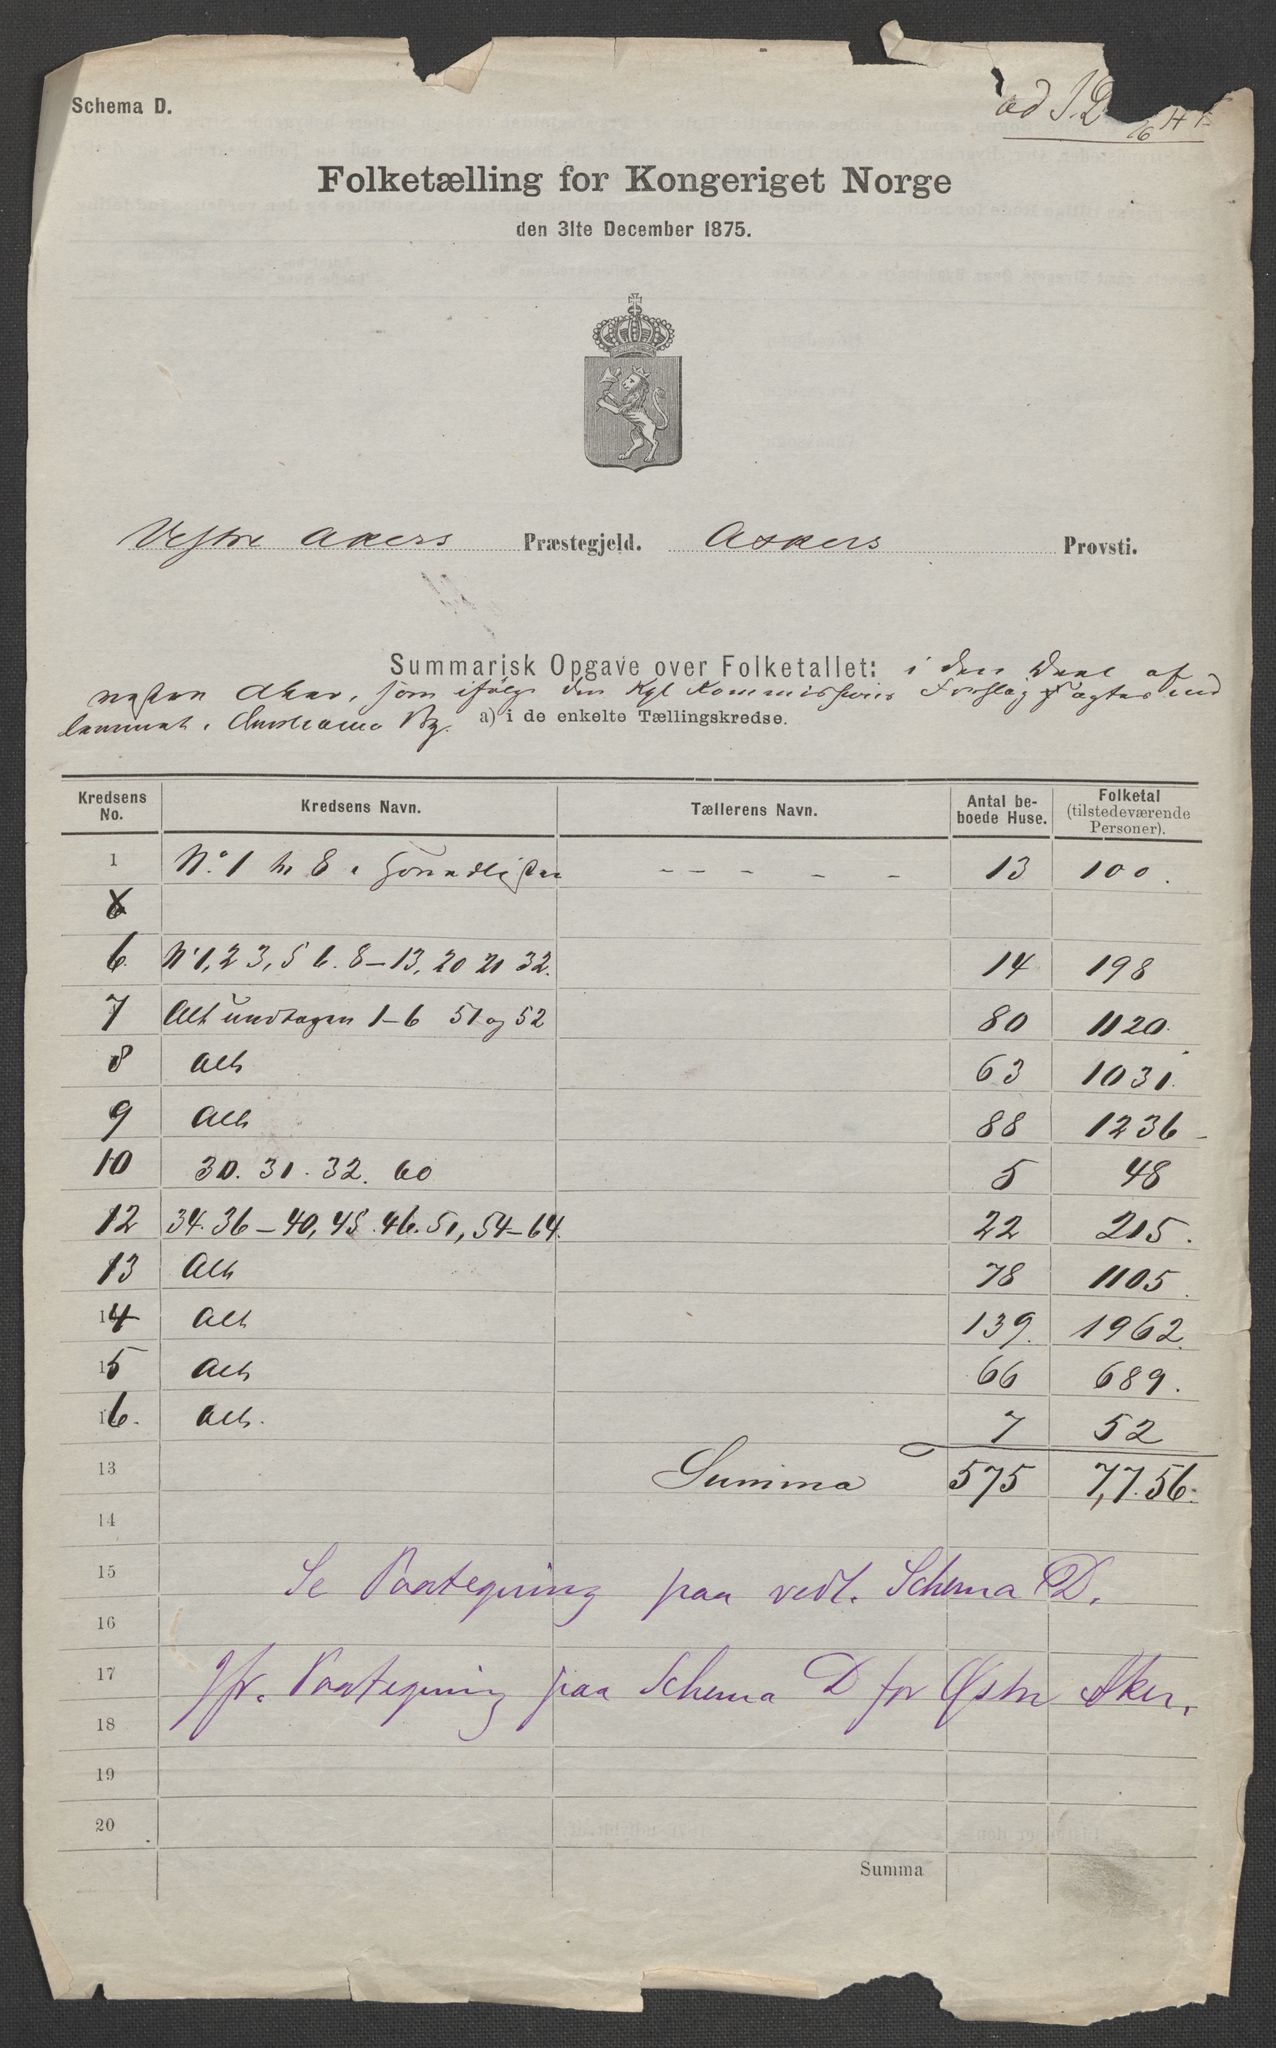 Schema D.
ad J. D
16
Folketælling for Kongeriget Norge
den 31te December 1875.
Vestre Akers Præstegjeld. Askers Provsti.
Summarisk Opgave over Folketallet: i den Deel af
Vestre Aker, som ifølge den Kgl Kommissions Forslag agtes ind
lemmet i Christiania By. a) i de enkelte Tællingskredse.
Kredsens No. Kredsens Navn. Tællerens Navn. Antal beboede Huse. Folketal (tilstedeværende Personer).
1 No. 1 til 8 i - - - - - 13 100.
6 No 1, 2 3, 5 6. 8-13, 20 21 32. 14 198
7 Alt undtagen 1-6 51 og 52 80 1120.
8 Alt 63 1031.
9 Alt 88 1236
10 30. 31. 32. 60 5 48
12 34. 36-40, 45. 46. 51, 54-64. 22 215.
13 Alt 78 1105
14 Alt 139. 1962.
15 Alt 66 689.
16. Alt. 7 52
13 Summa 575 7,7.56.
14
15 Se Paategning paa vedl. Schema D.
16
17 Jfr. Paategning paa Schema D for Østre Aker.
18
19
20
Summa